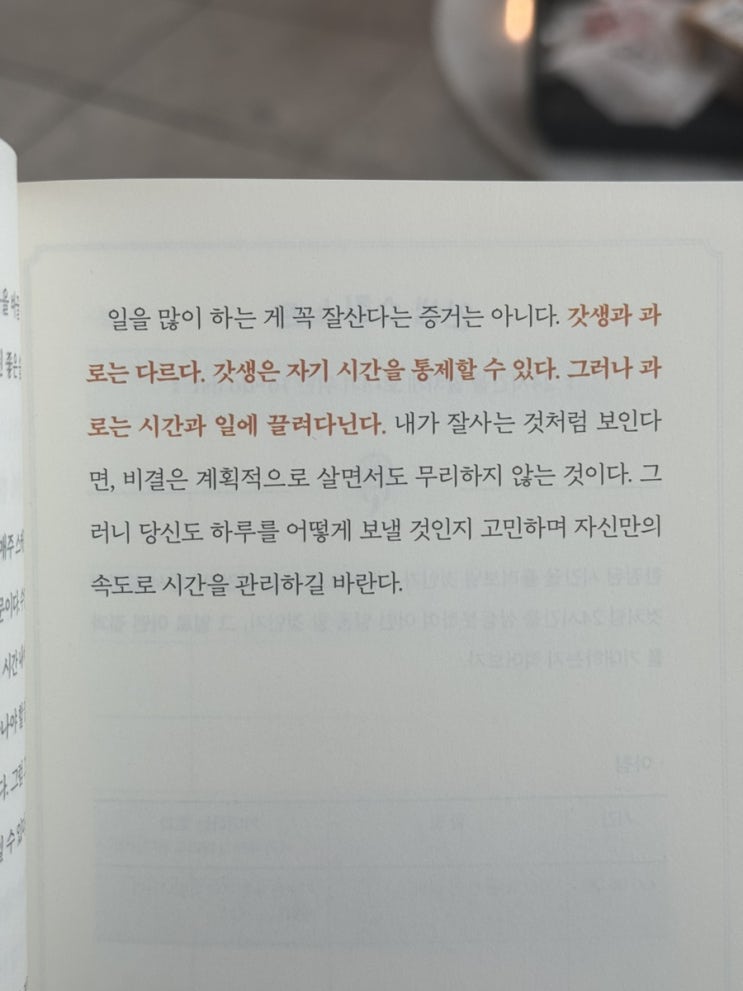 일을 많이 하는 게 꼭 잘산다는 증거는 아니다. 갓생과 과
로는 다르다. 갓생은 자기 시간을 통제할 수 있다. 그러나 과
로는 시간과 일에 끌려다닌다. 내가 잘사는 것처럼 보인다
면, 비결은 계획적으로 살면서도 무리하지 않는 것이다. 그
러니 당신도 하루를 어떻게 보낼 것인지 고민하며 자신만의
속도로 시간을 관리하길 바란다.